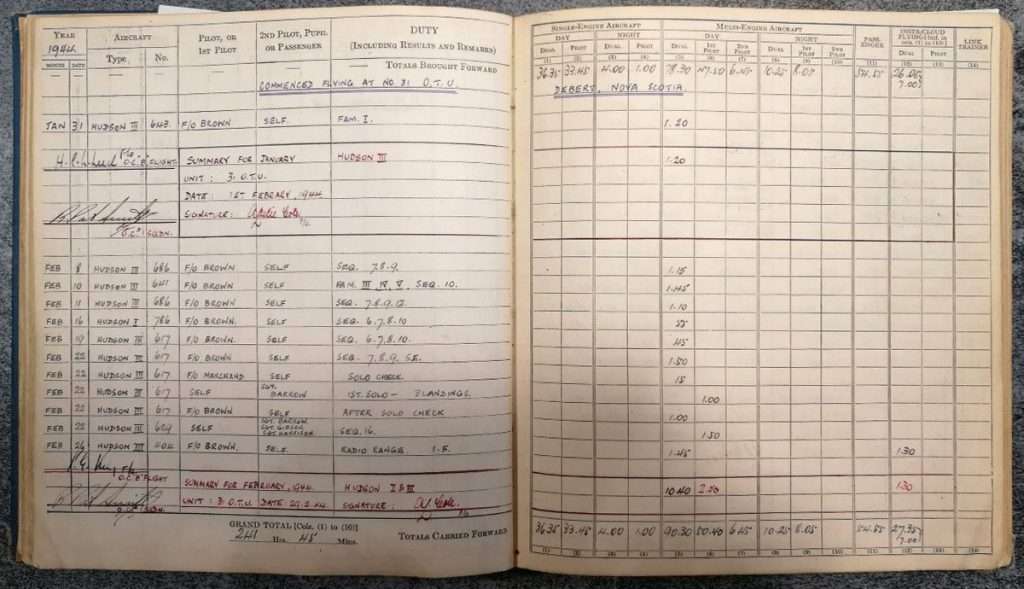 YEAR 1944 AIRCRAFT PILOT, OR 1ST PILOT 2ND PILOT, PUPIL OR PASSENGER DUTY (INCLUDING RESULTS AND REMARKS)
MONTH DATE Type No.
SINGLE-ENGINE AIRCRAFT MULTI-ENGINE AIRCRAFT PASSENGER INSTR/CLOUD FLYING [Incl. in cols. (1) to (10)] LINK TRAINER
DAY NIGHT DAY NIGHT
DUAL PILOT DUAL PILOT DUAL 1ST PILOT 2ND PILOT DUAL 1ST PILOT 2ND PILOT DUAL PILOT
(1) (2) (3) (4) (5) (6) (7) (8) (9) (10) (11) (12) (13) (14)
TOTALS BROUGHT FORWARD 36.35 33.45 4.00 1.00 78.30 47.50 6.45 10.25 8.05 54.55 26.05
7.00
COMMENCED FLYING AT NO. 31 O.T.U. DEBERT, NOVA SCOTIA.
JAN 31 HUDSON III 643 F/O BROWN SELF FAM. I. 1.20
F/O O.C. 'B' FLIGHT SUMMARY FOR JANUARY HUDSON III 1.20
UNIT: 31 O.T.U.
DATE: 1ST FEBRUARY, 1944
SIGNATURE:
O.C. 1 SQDN.
FEB 8 HUDSON III 686 F/O BROWN SELF SEQ. 7.8.9. 1.15
FEB 10 HUDSON III 641 F/O BROWN SELF FAM. III, IV, V, SEQ. 10. 1.45
FEB 11 HUDSON III 686 F/O BROWN SELF SEQ. 7.8.9.12. 1.10
FEB 16 HUDSON I 786 F/O BROWN. SELF SEQ. 6.7.8.10 55
FEB 19 HUDSON III 617 F/O BROWN. SELF SEQ. 6.7.8.10. 45
FEB 22 HUDSON III 617 F/O BROWN SELF SEQ. 7.8.9. SE. 1.50
FEB 22 HUDSON III 617 F/O MARCHAND SELF SOLO CHECK 15
FEB 22 HUDSON III 617 SELF SGT. BARROW 1ST. SOLO - 2 LANDINGS. 1.00
FEB 22 HUDSON III 617 F/O BROWN SELF AFTER SOLO CHECK 1.00
FEB 22 HUDSON III 629 SELF SGT. BARROW SGT. GIBSON SGT. GARRISON SEQ. 16. 1.50
FEB 26 HUDSON III F/O BROWN. SELF. RADIO RANGE 1-5. 1.45 1.30
O.C. 'B' FLIGHT SUMMARY FOR FEBRUARY, 1944. HUDSON I & III 10.40 2.50 1.30
UNIT: 31 O.T.U. DATE: 29.2.44. SIGNATURE:
GRAND TOTAL [Cols. (1) to (10)]
241 Hrs. 45 Mins.
TOTALS CARRIED FORWARD 36.35 33.45 4.00 1.00 90.30 50.40 6.45 10.25 8.05 54.55 27.35
7.00
(1) (2) (3) (4) (5) (6) (7) (8) (9) (10) (11) (12) (13) (14)